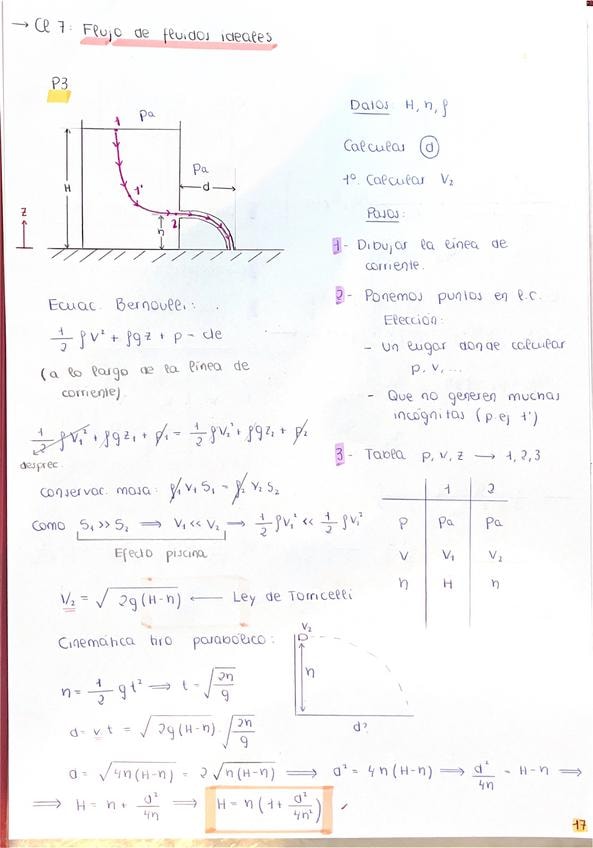 → CL 7: Flujo de fluidos ideales
P3
Pa
1
H
1'
Pa
d
2
h
z
Datos: H, h, ρ
Calcular d
1º. Calcular V₂
Pasos:
1- Dibujar la línea de
corriente.
2- Ponemos puntos en l.c.
Elección:
- Un lugar donde calcular
p, v, ...
- Que no generen muchas
incógnitas (p.ej 1')
3- Tabla p, v, z → 1, 2, 3
1 2
P Pa Pa
V V₁ V₂
h H h
Ecuac. Bernoulli:
1/2 ρv² + ρgz + p = cte
(a lo largo de la línea de
corriente).
1/2 ρV₁² + ρgz₁ + p₁ = 1/2 ρV₂² + ρgz₂ + p₂
desprec.
Conservac. masa: ρ₁ V₁ S₁ = ρ₂ V₂ S₂
Como S₁ >> S₂ ⟹ V₁ << V₂ → 1/2 ρV₁² << 1/2 ρV₂²
Efecto piscina
V₂ = √2g(H-h) ← Ley de Torricelli
Cinemática tiro parabólico:
V₂
h
d?
h = 1/2 gt² ⟹ t = √2h/g
d = v t = √2g(H-h) · √2h/g
d = √4h(H-h) = 2√h(H-h) ⟹ d² = 4h(H-h) ⟹ d²/4h = H-h ⟹
⟹ H = h + d²/4h ⟹ H = h (1 + d²/4h²)
17